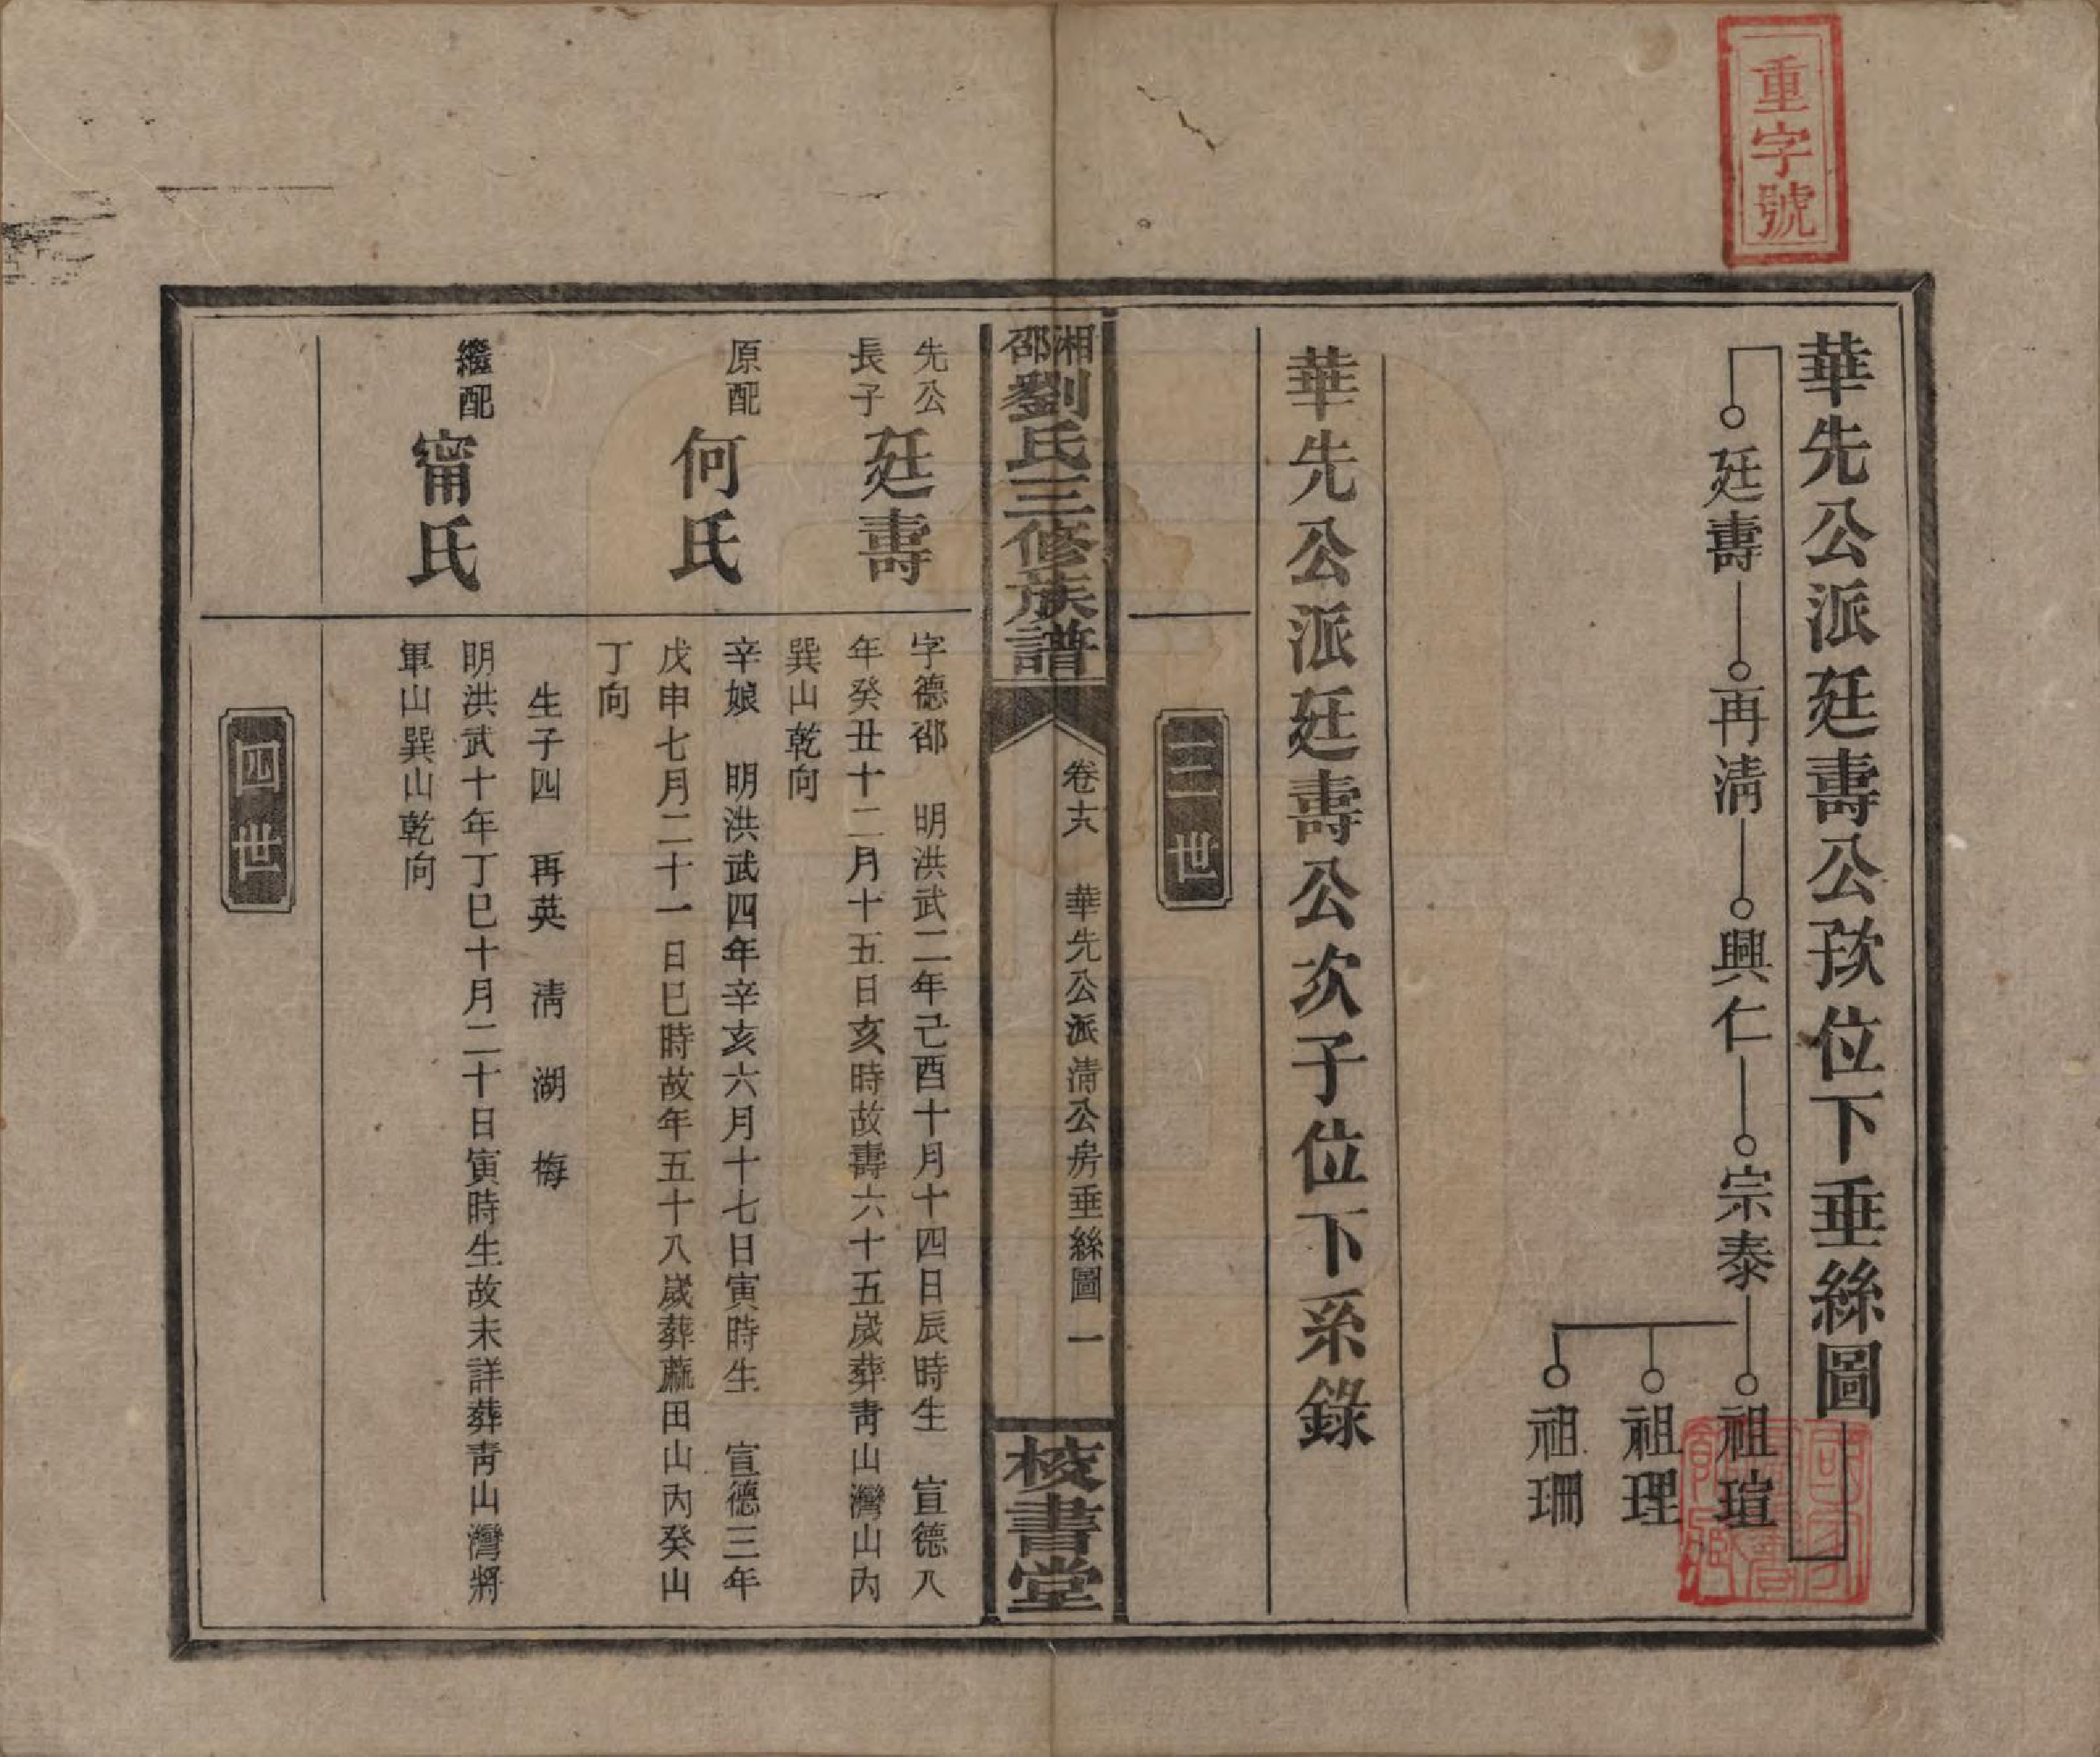 重字號
華先公派廷壽公欵位下垂絲圖
廷壽 再淸 興仁 宗泰 祖瑄
祖理
祖珊
華先公派廷壽公次子位下系錄
三世
湘邵劉氏三修族譜 卷十六 華先公派淸公房垂絲圖 一 校書堂
先公
長子
廷壽
字德邵 明洪武二年己酉十月十四日辰時生 宣德八
年癸丑十二月十五日亥時故壽六十五歲葬靑山灣山內
巽山乾向
原配
何氏
辛娘 明洪武四年辛亥六月十七日寅時生 宣德三年
戊申七月二十一日巳時故年五十八歲葬蔴田山內癸山
丁向
生子四 再英 淸 湖 梅
繼配
甯氏
明洪武十年丁巳十月二十日寅時生故未詳葬靑山灣將
軍山巽山乾向
四世